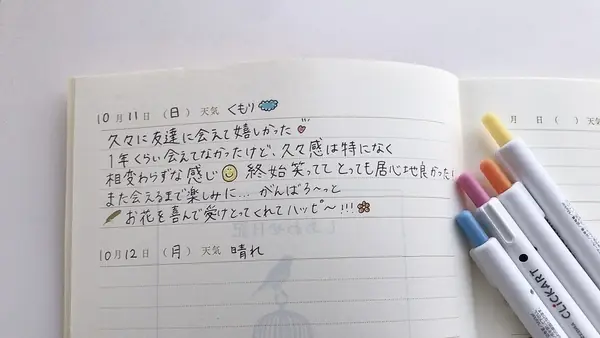 10月11日(日)天気 くもり
久々に友達に会えて嬉しかった
1年くらい会えてなかったけど、久々感は特になく
相変わらずな感じ 終始笑ってて とっても居心地良かった!
また会えるまで楽しみに... がんばろ〜っと
お花を喜んで受けとってくれてハッピ〜!!!
10月12日(月)天気 晴れ
月 日( )天
CLiCKART